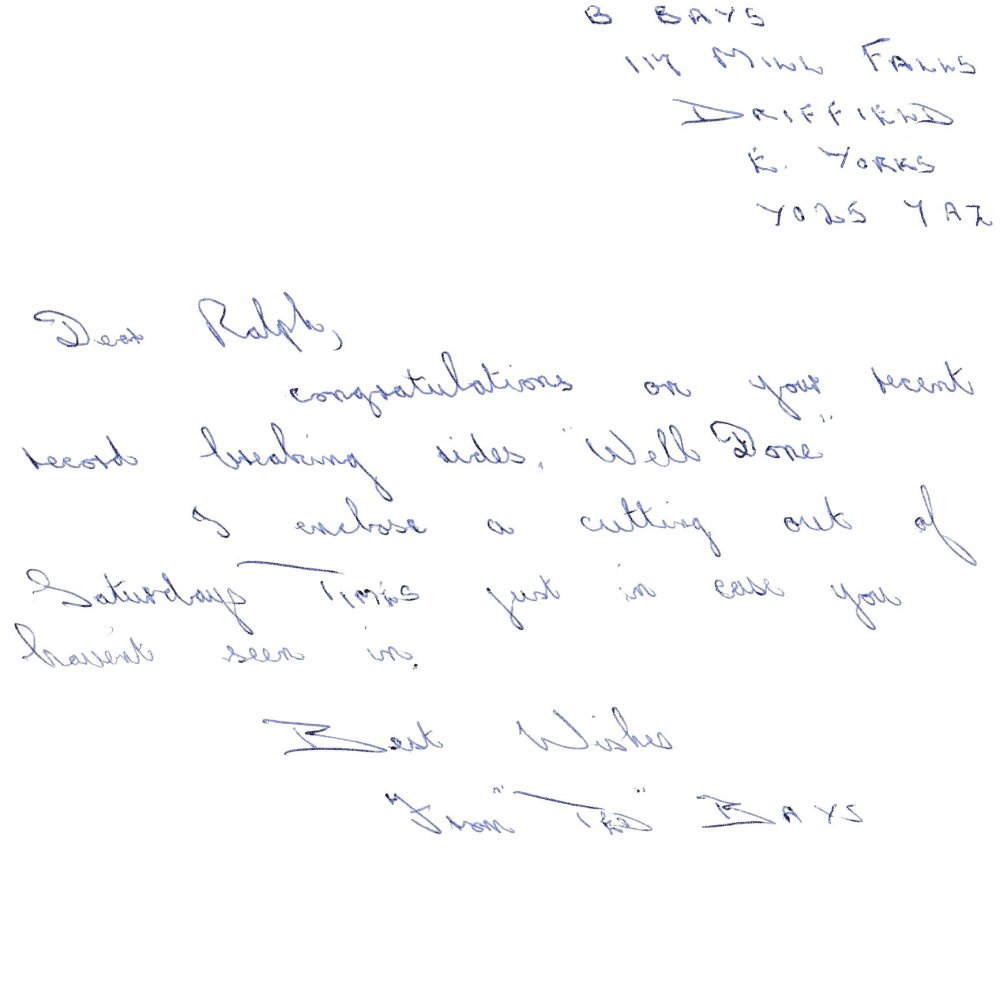 B BAYS
114 MILL FALLS
DRIFFIELD
E. YORKS
YO25 YAZ
Dear Ralph,
congratulations on your recent
record breaking rides. "Well Done"
I enclose a cutting out of
Saturdays TIMES just in case you
havent seen in.
Best Wishes
From "TED" BAYS